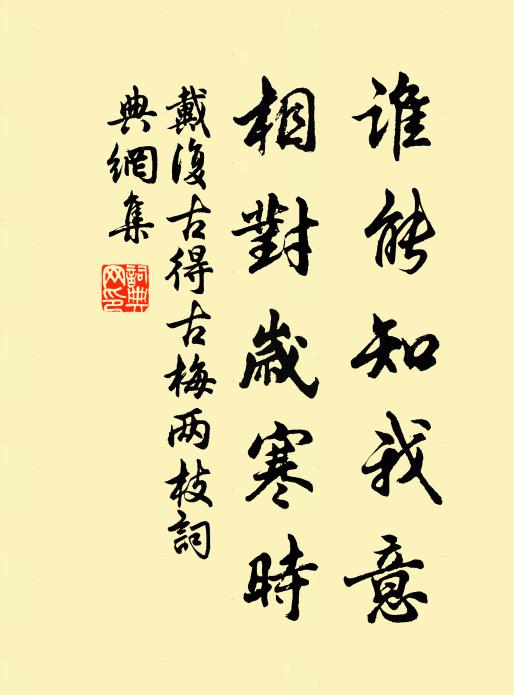 谁能知我意
相對歲寒時
戴復古得古梅两枝詞
典網集
詞典网印